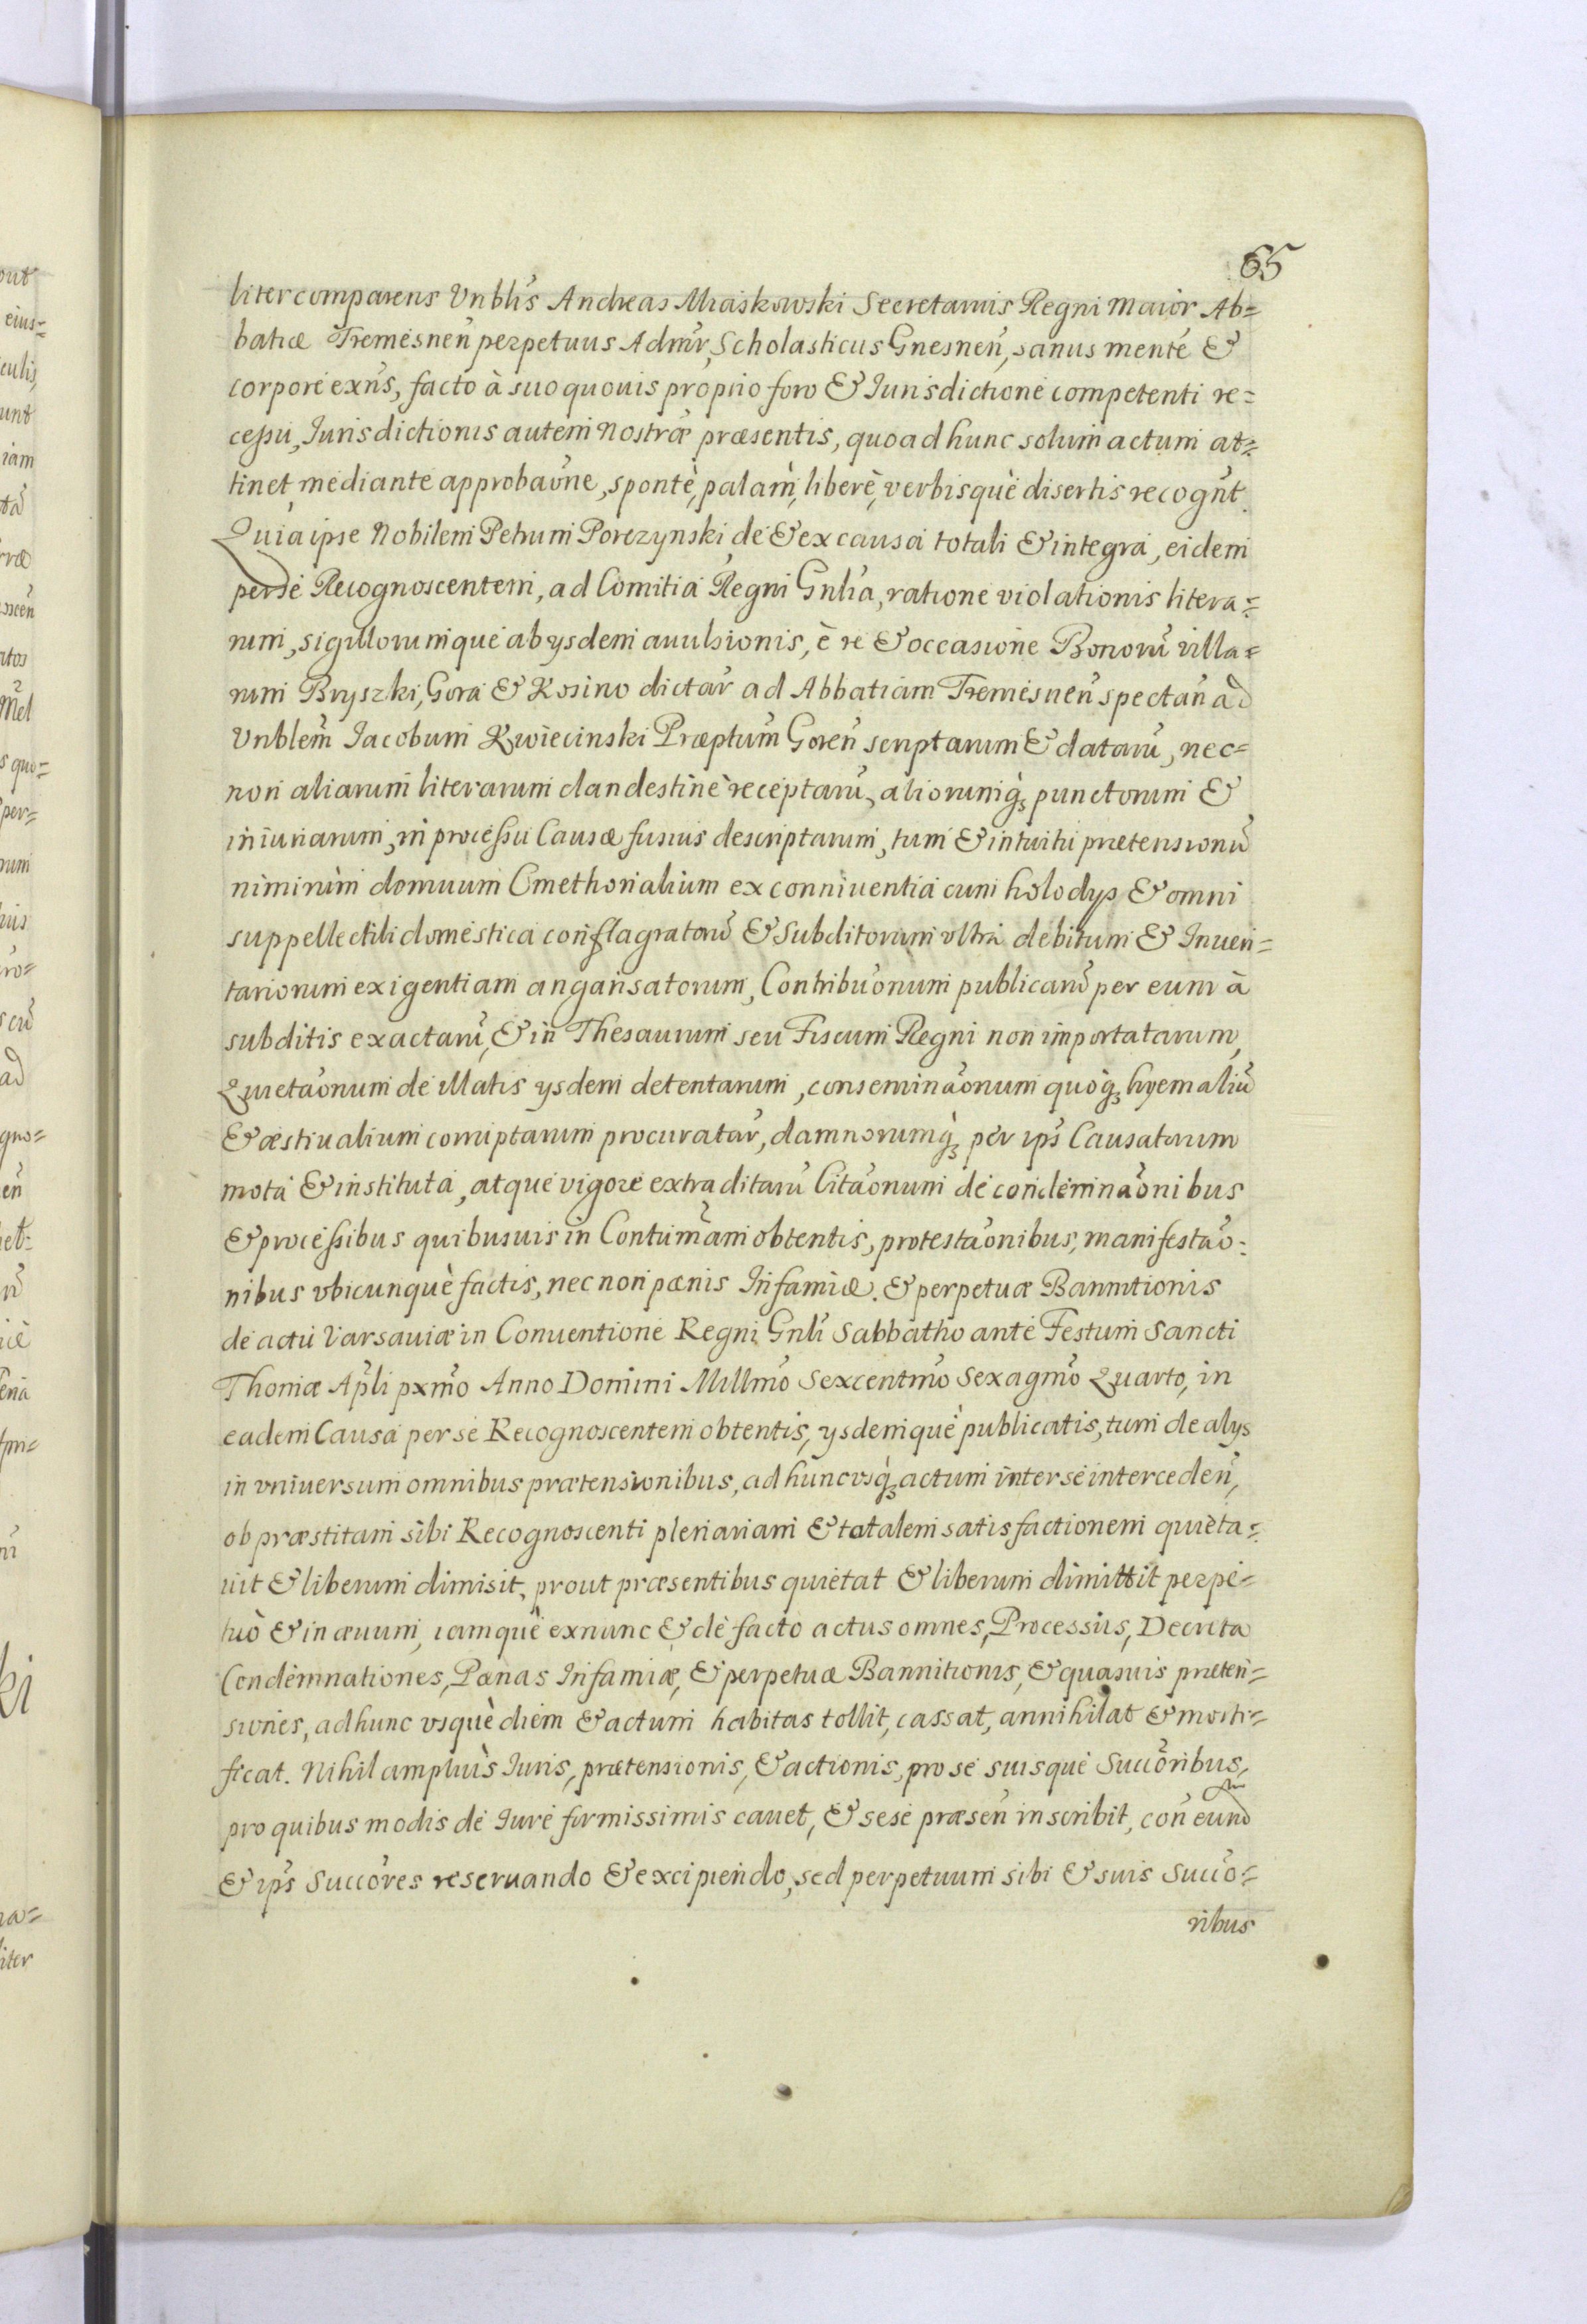 65
liter comparens Vnblis Andreas Miaskowski Secretarius Regni Maior Ab=
batiæ Tremesnen̄ perpetuus Admr̄, Scholasticus Gnesnen̄, sanus mente &
corpore exn̄s, facto à suo quouis proprio foro & Iurisdictione competenti re=
cessu, Iurisdictionis autem nostræ præsentis, quo ad hunc solum actum at=
tinet mediante approbaōne, spontè, palàm, liberè, verbisquè disertis recogn̄t.
Quia ipse Nobilem Petrum Porczynski de & ex causa totali & integra, eidem
per se Recognoscentem, ad Comitia Regni Gnlia, ratione violationis litera=
rum, sigillorumque ab ysdem auulsionis, è re & occasione Bonorū villa=
rum Bryszki, Gora & Kosino dictar̄ ad Abbatiam Tremesnen̄ spectan̄ ad
Vnblem̄ Iacobum Kwiecinski Præptum̄ Goren̄ scriptarum & datarū, nec=
non aliarum literarum clandestinè receptarū, aliorumq̨ punctorum &
iniuriarum, in processu Causæ fusius descriptarum, tum & intuitu prætensionū
nimirùm domuum Cmethonalium ex conniuentia cum holodys & omni
suppellectili domestica conflagratorū & Subditorum vltra debitum & Inuen=
tariorum exigentiam angarisatorum, Contribuōnum publicarū per eum à
subditis exactarū, & in Thesaurum seu Fiscum Regni non importatarum,
Quietaōnum de illatis ysdem detentarum, conseminaōnum quoq̨ hyemaliū
& æstiualium corruptarum procuratar̄, damnorumq̨ per ips̄ Causatorum
mota & instituta, atque vigore extraditarū Citaōnum de condemnaōnibus
& processibus quibusuis in Contumām obtentis, protestaōnibus, manifestaō=
nibus vbicunquè factis, nec non pænis Infamiæ. & perpetuæ Bannitionis
de actu Varsauiæ in Conuentione Regni Gnli Sabbatho ante Festum Sancti
Thomæ Apl̄i pxmō Anno Domini Millmō Sexcentmō Sexagmō Quarto, in
eadem Causa per se Recognoscentem obtentis, ysdemquè publicatis, tum de alys
in vniuersum omnibus prætensionibus, ad hunc vsq̨ actum inter se interceden̄,
ob præstitam sibi Recognoscenti plenariam & totalem satisfactionem quieta=
uit & liberum dimisit, prout præsentibus quietat & liberum dimittit perpe=
tuò & in æuum, iamquè exnunc & de facto actus omnes, Processus, Decreta
Condemnationes, Pænas Infamiæ, & perpetuæ Bannitionis, & quasuis præten=
siones, ad hunc vsquè diem & actum habitas tollit, cassat, annihilat & morti=
ficat. Nihil ampliùs Iuris, prætensionis, & actionis, pro se suisque Succōribus,
pro quibus modis de Iure firmissimis cauet, & sese præsen̄ inscribit, con̄ eund
& ips̄ Succōres reseruando & excipiendo, sed perpetuum sibi & suis Succō=
ribus